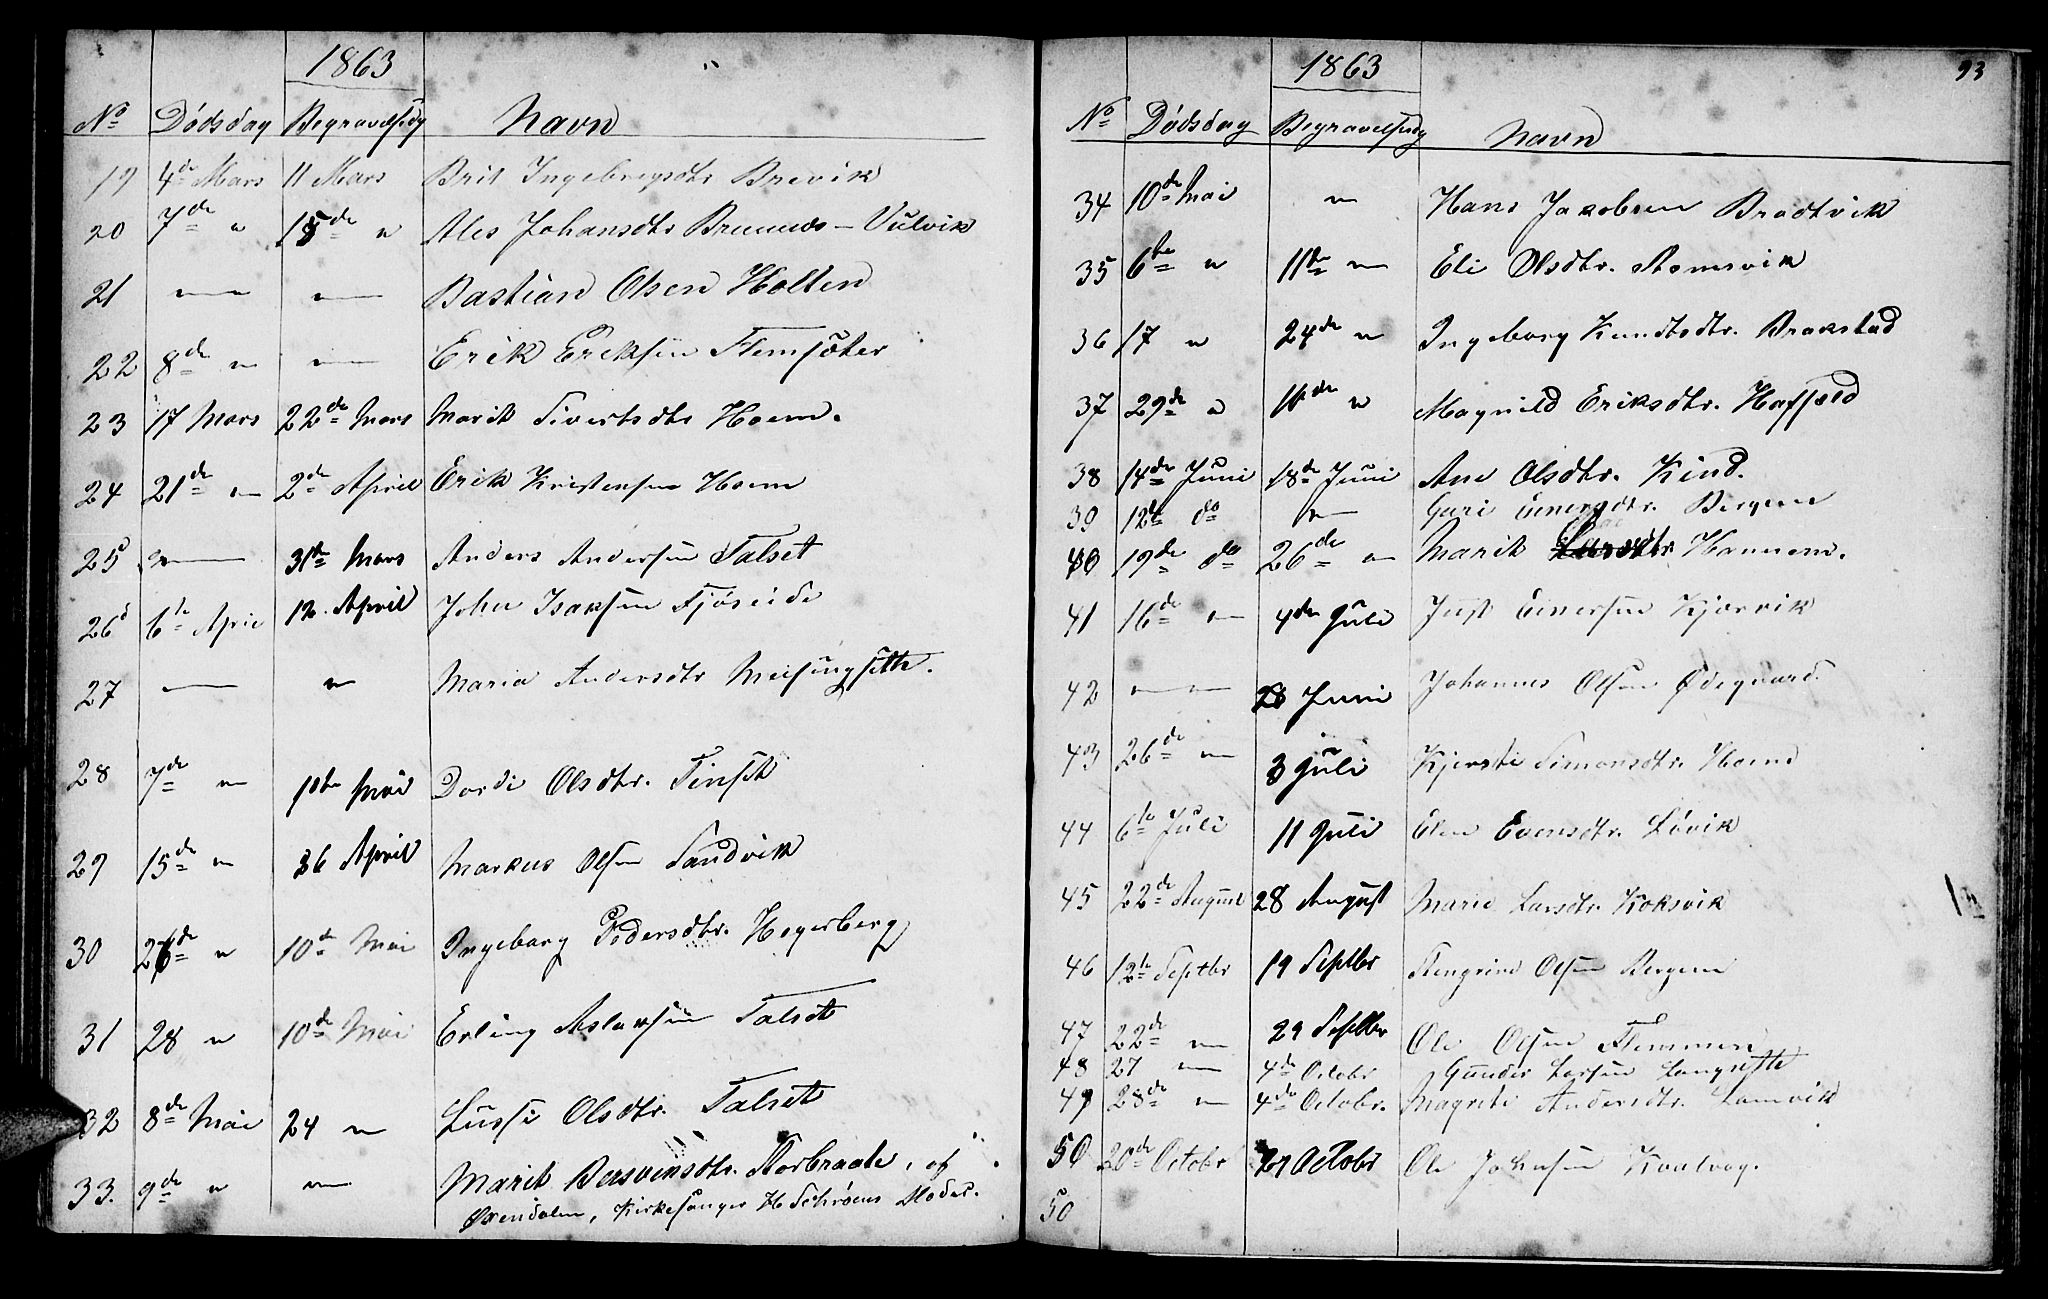 1863
No Dødsdag Begravelsdg Navn
19 4de Mars 11 Mars Brit Ingebregsdtr Brevik
20 7de " 15de " Ales Johansdtr Bruunds - Vulvik
21 — — Bastian Olsen Holten
22 8de " — Erik Eriksen Stemsæter
23 17 Mars 22de Mars Marit Sivertsdtr Hoem.
24 21de " 2de April Erik Kristensen Hoem
25 " — 31te Mars Anders Andersen Talset
26 6te April 12. April John Isaksen Fjøseide
27 — " Maria Andersdtr Meisingsette.
28 7de " 10de Mai Dordi Olsdtr. Tinset
29 15de " 26 April Markus Olsen Sandvik
30 26de " 10de Mai Ingeborg Pedersdtr. Hegerberg
31 28 " 10de Mai Erling Aslaksen Talset
32 8de Mai 24 " Lussi Olsdtr. Talset
33. 9de " " Marit Bersvensdtr. Storbraate, af
Øxendalen, Kirkesanger H. Schrøens Moder.
1863 93
No Dødsdag Begravelsdg Navn
34 10de Mai " Hans Jakobsen Bradtvik
35 6te " 11te " Eli Olsdtr. Aamesvik
36 17 " 24de " Ingeborg Knudtsdtr. Brakstad
37 29de " " Magnild Eriksdtr. Hafsæd
38 14de Juni 18de Juni Ane Olsdtr. Kind.
39 12te do " Guri Einersdtr. Bergem
40 19de do 26de " Marit Hannem.
41 16de " 4de Juli Just Einersen Kjørvik
42 " " 28 Juni Johannes Olsen Ødegaard.
43 26de " 3 Juli Kjersti Simonsdtr. Hoem
44 6te Juli 11 Juli Elen Evensdtr. Løvik
45 22de August 28 August Marie Larsdtr. Koksvik
46 12te Septbr 19 Septbr Stengrim Olsen Bergem
47 22de " 29 Septbr Ole Olsen Stemmen
48 27 " 4de Octobr Gunder Larsen Langsette
49 28de " 4de Octobr. Magrete Andersdtr. Lomvik
50 20de Octobr 29 Octobr Ole Johnsen Kvalvag.
50